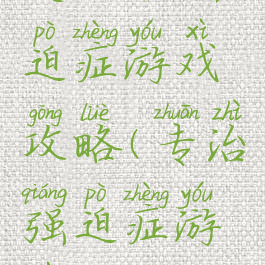 pò zhèng yóu xì
迫症游戏
gōng lüè zhuān zhì
攻略(专治
qiáng pò zhèng yóu
强迫症游